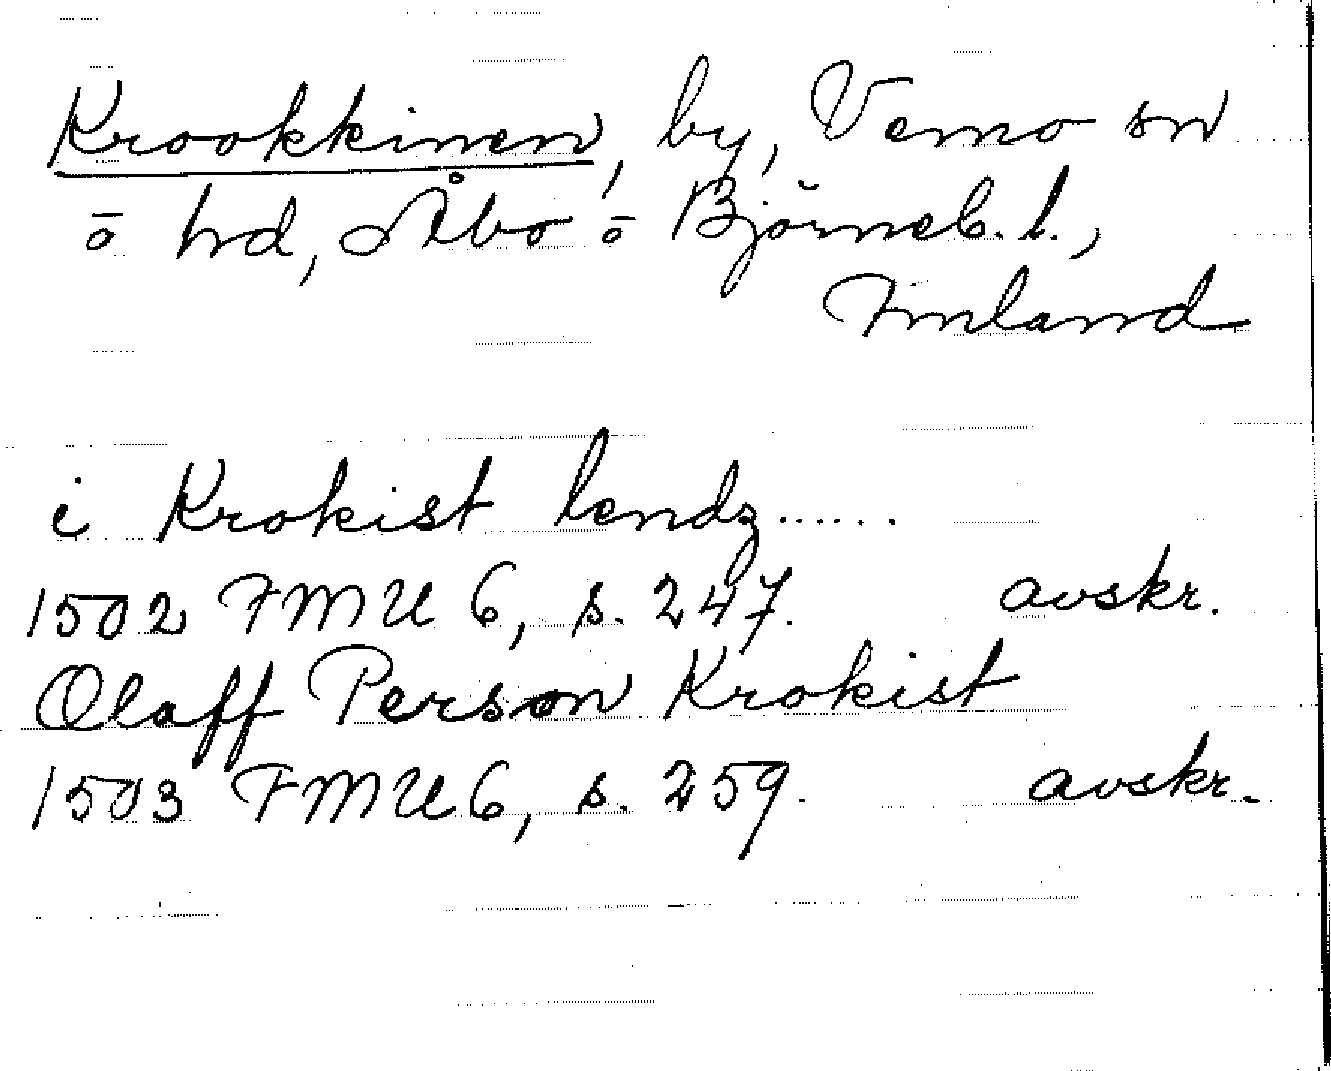 Krookkinen, by, Vemo sn
o hd, Åbo o Björneb. l.,
Finland
i Krokist lendz......
1502 FMU 6, s. 247. avskr.
Olaff Person Krokist
1503 FMU 6, s. 259. avskr.